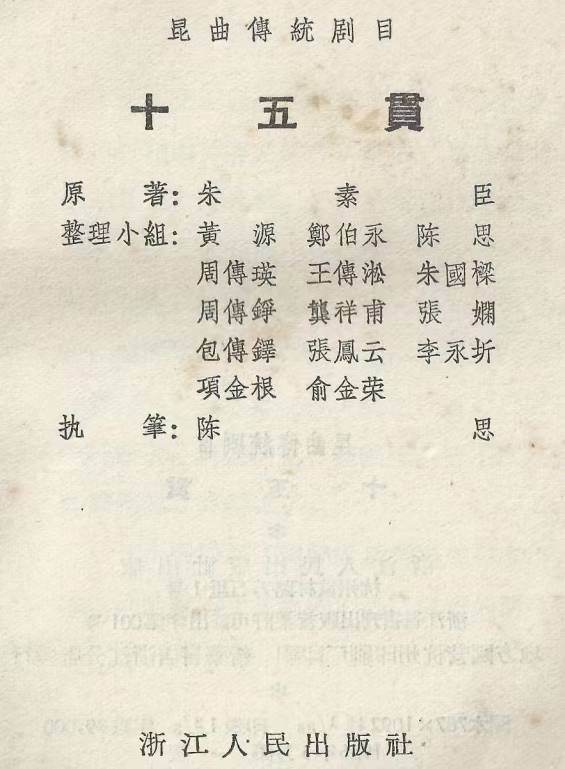 昆曲傳統剧目
十五貫
原著：朱素臣
整理小組：黃源 鄭伯永 陈思
周傳瑛 王傳淞 朱國樑
周傳錚 龔祥甫 張嫻
包傳鐸 張鳳云 李永圻
項金根 俞金荣
执筆：陈思
浙江人民出版社